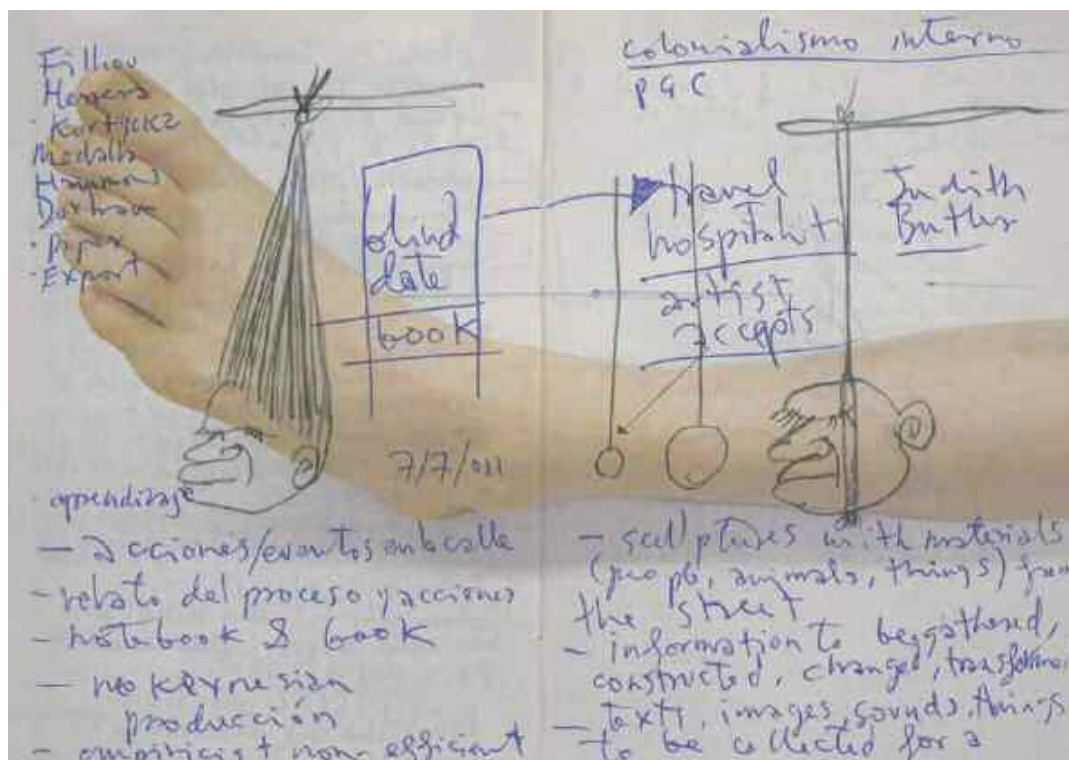 Filliou
Kortyckz
Medalla
Hammons
Piper
Export
blind
date
book
7/7/011
aprendizaje
— acciones/eventos en la calle
— relato del proceso y acciones
— notebook & book
— no keynesian
producción
— empiricist non-efficient
colonialismo interno
P G C
travel
hospitality
artist
accepts
Judith
Butler
— sculptures with materials
(people, animals, things) from
the street
— information to be gathered,
constructed, changed, transformed
— texts, images, sounds, things
to be collected for a